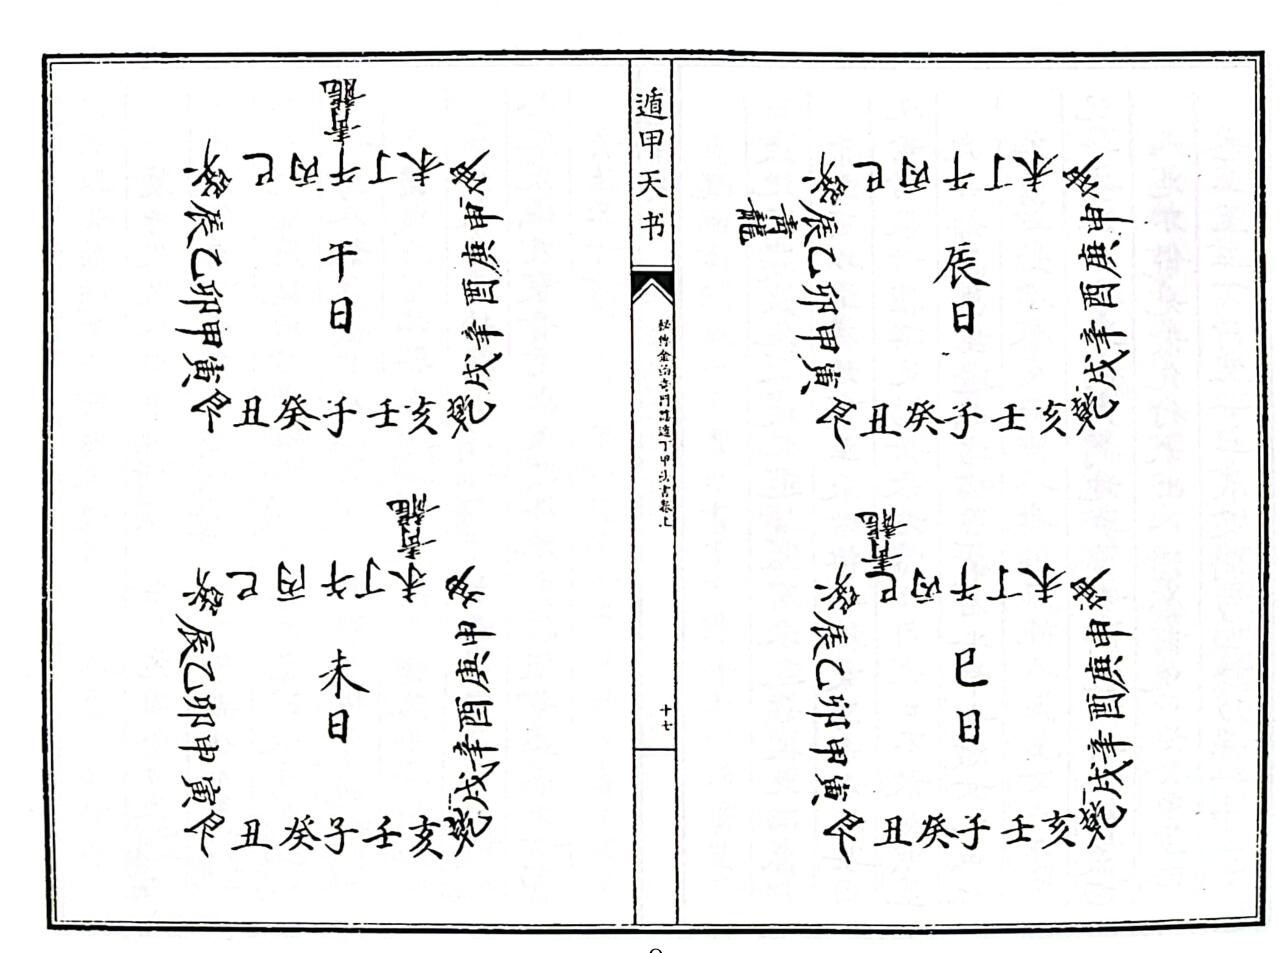 巽巳丙午丁未坤
申庚酉辛戌
乾亥壬子癸丑艮
寅甲卯乙辰
青龍
辰日
巽巳丙午丁未坤
申庚酉辛戌
乾亥壬子癸丑艮
寅甲卯乙辰
青龍
巳日
遁甲天书
秘传金函奇門隱遁丁甲法書卷上
十七
青龍
巽巳丙午丁未坤
申庚酉辛戌
乾亥壬子癸丑艮
寅甲卯乙辰
午日
青龍
巽巳丙午丁未坤
申庚酉辛戌
乾亥壬子癸丑艮
寅甲卯乙辰
未日